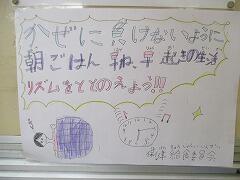 かぜに負けないように
朝ごはん 早ね、早起きの生活
リズムをととのえよう!!
給食委員会